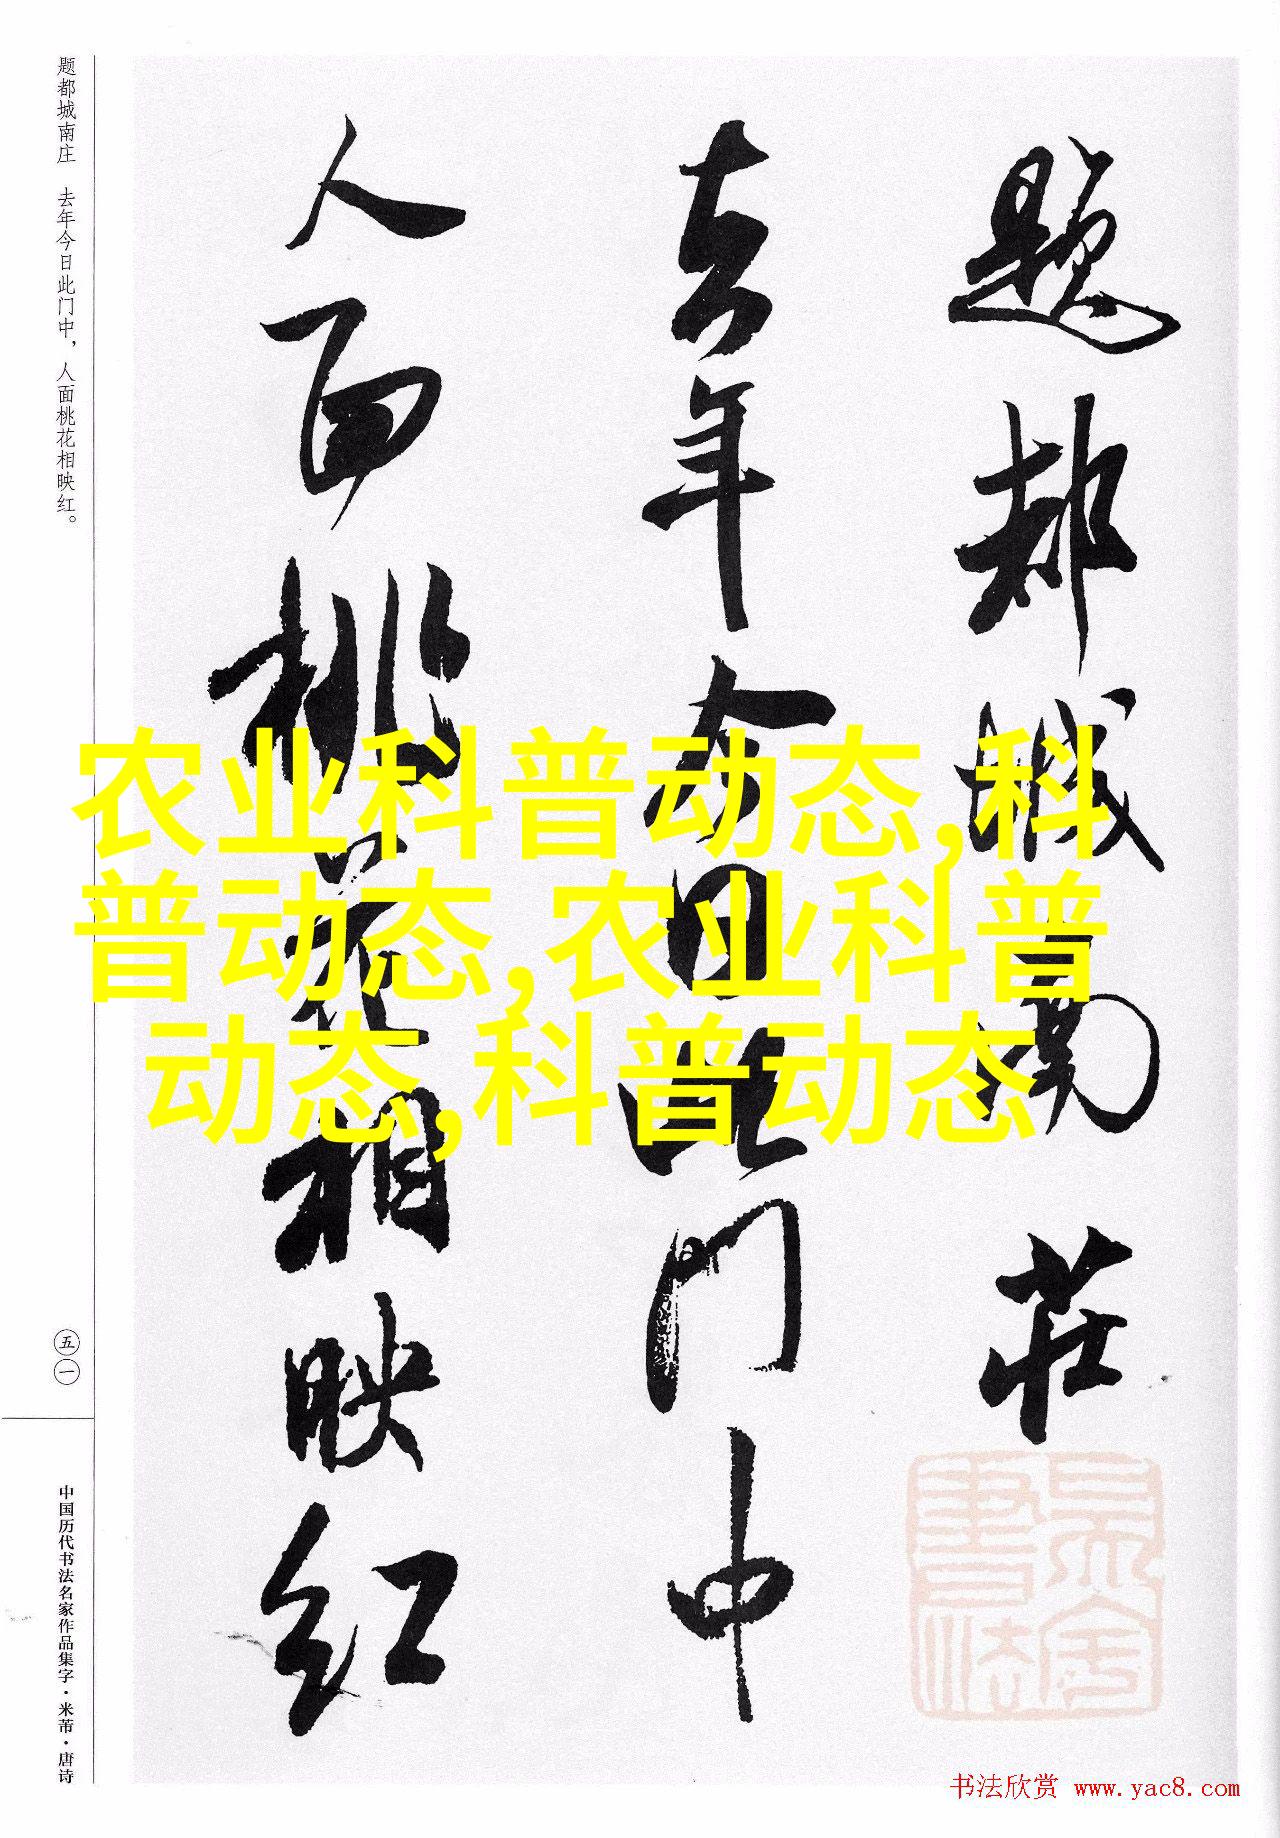 题都城南庄　去年今日此门中，人面桃花相映红。
題都城南莊
去年今日此門中
人面桃花相映紅
农业科普动态,科
普动态,农业科普
动态,科普动态
五一
中国历代书法名家作品集字·米芾·唐诗
书法欣赏 www.yac8.com